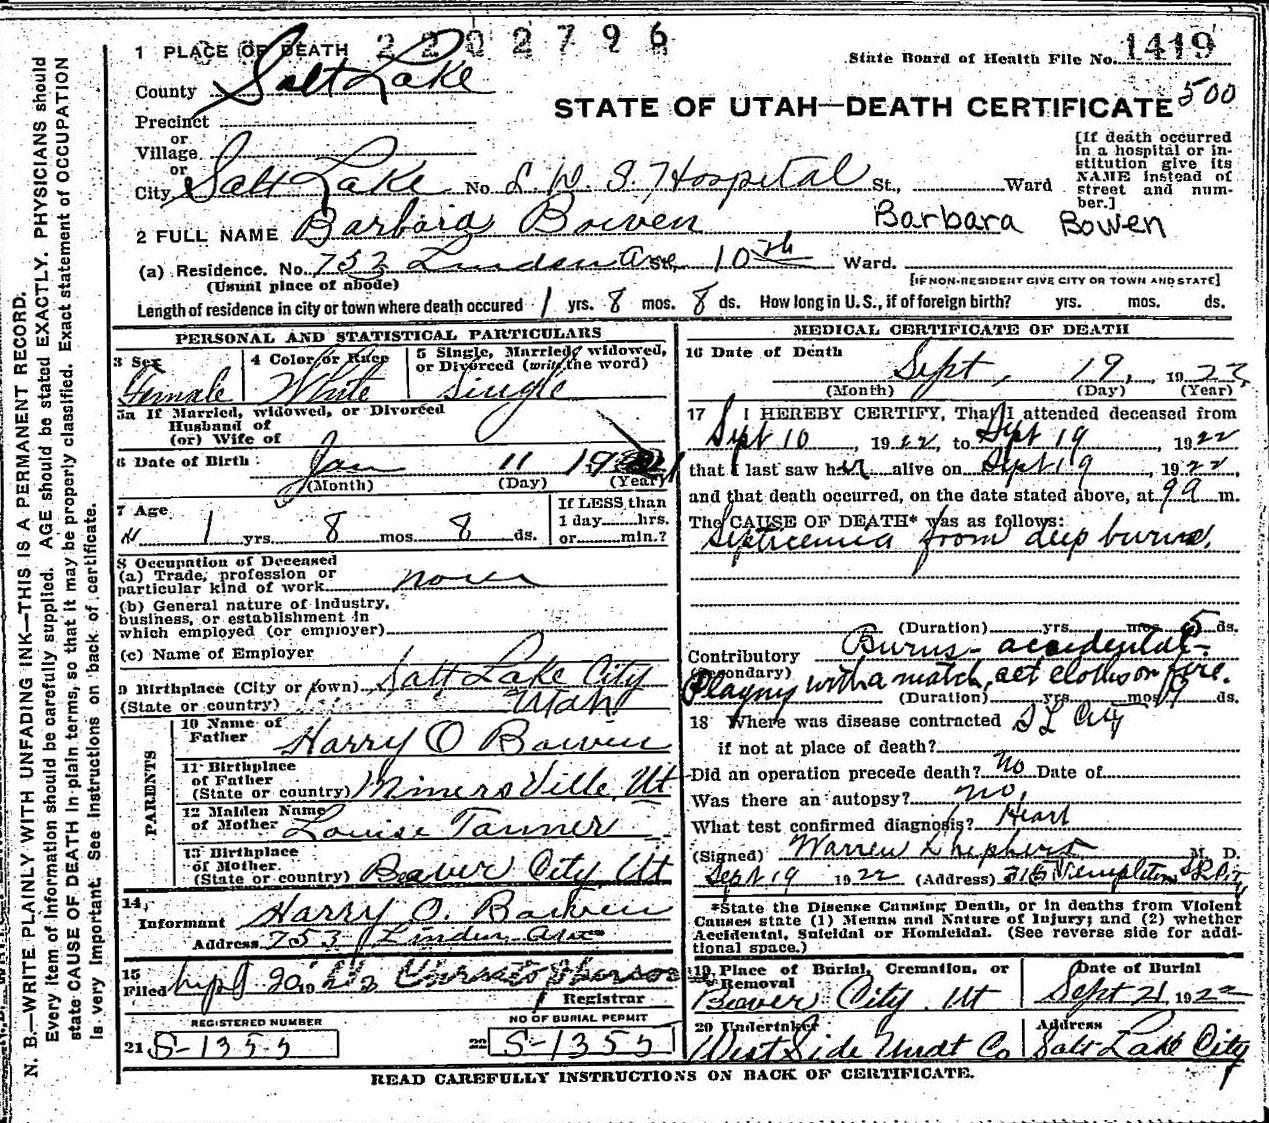 1 PLACE OF DEATH 2202796
State Board of Health File No. 1419
County Salt Lake
STATE OF UTAH—DEATH CERTIFICATE 500
Precinct
or
Village
or
City Salt Lake No. L. D. S. Hospital St., Ward
[If death occurred in a hospital or institution give its NAME instead of street and number.]
2 FULL NAME Barbara Bowen Barbara Bowen
(a) Residence. No. 753 Linden Ave St., 10th Ward.
(Usual place of abode)
[IF NON-RESIDENT GIVE CITY OR TOWN AND STATE]
Length of residence in city or town where death occured 1 yrs. 8 mos. 8 ds. How long in U. S., if of foreign birth? yrs. mos. ds.
PERSONAL AND STATISTICAL PARTICULARS
3 Sex Female
4 Color or Race White
5 Single, Married, widowed, or Divorced (write the word) Single
5a If Married, widowed, or Divorced
Husband of
(or) Wife of
6 Date of Birth Jan 11
(Month) (Day) (Year)
7 Age 1 yrs. 8 mos. 8 ds.
If LESS than
1 day hrs.
or min.?
8 Occupation of Deceased
(a) Trade, profession or
particular kind of work none
(b) General nature of industry,
business, or establishment in
which employed (or employer)
(c) Name of Employer
9 Birthplace (City or town) Salt Lake City
(State or country) Utah
PARENTS
10 Name of Father Harry O Bowen
11 Birthplace of Father
(State or country) Minersville, Ut
12 Maiden Name of Mother Louise Tanner
13 Birthplace of Mother.
(State or country) Beaver City Ut
14,
Informant Harry O. Bowen
Address 753 Linden Ave
15
Filed Sept 20 19
Registrar
REGISTERED NUMBER
21 S-1355
NO OF BURIAL PERMIT
22 S-1355
MEDICAL CERTIFICATE OF DEATH
16 Date of Death Sept, 19, 1922
(Month) (Day) (Year)
17 I HEREBY CERTIFY, That I attended deceased from
Sept 10, 1922, to Sept 19 1922
that I last saw her alive on Sept 19, 1922,
and that death occurred, on the date stated above, at 9 a m.
The CAUSE OF DEATH* was as follows:
Septicemia from deep burns.
(Duration) yrs. mos 5 ds.
Contributory Burns - accidental -
(Secondary) Playing with a match, set cloths on fire.
(Duration) yrs. mos 9 ds.
18 Where was disease contracted S L City
if not at place of death?
Did an operation precede death? No Date of
Was there an autopsy? no.
What test confirmed diagnosis? Heart
(Signed) Warren Shepherd M. D.
Sept 19 1922 (Address) Templeton
*State the Disease Causing Death, or in deaths from Violent
Causes state (1) Means and Nature of Injury; and (2) whether
Accidental, Suicidal or Homicidal. (See reverse side for additional space.)
19 Place of Burial, Cremation, or Removal Beaver City Ut
Date of Burial Sept 21 1922
20 Undertaker West Side Undt Co
Address Salt Lake City
READ CAREFULLY INSTRUCTIONS ON BACK OF CERTIFICATE.
N. B.—WRITE PLAINLY WITH UNFADING INK—THIS IS A PERMANENT RECORD.
Every item of information should be carefully supplied. AGE should be stated EXACTLY. PHYSICIANS should
state CAUSE OF DEATH in plain terms, so that it may be properly classified. Exact statement of OCCUPATION
is very important. See instructions on back of certificate.